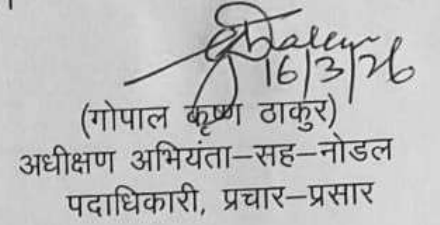 16/3/26
(गोपाल कृष्ण ठाकुर)
अधीक्षण अभियंता–सह–नोडल
पदाधिकारी, प्रचार–प्रसार